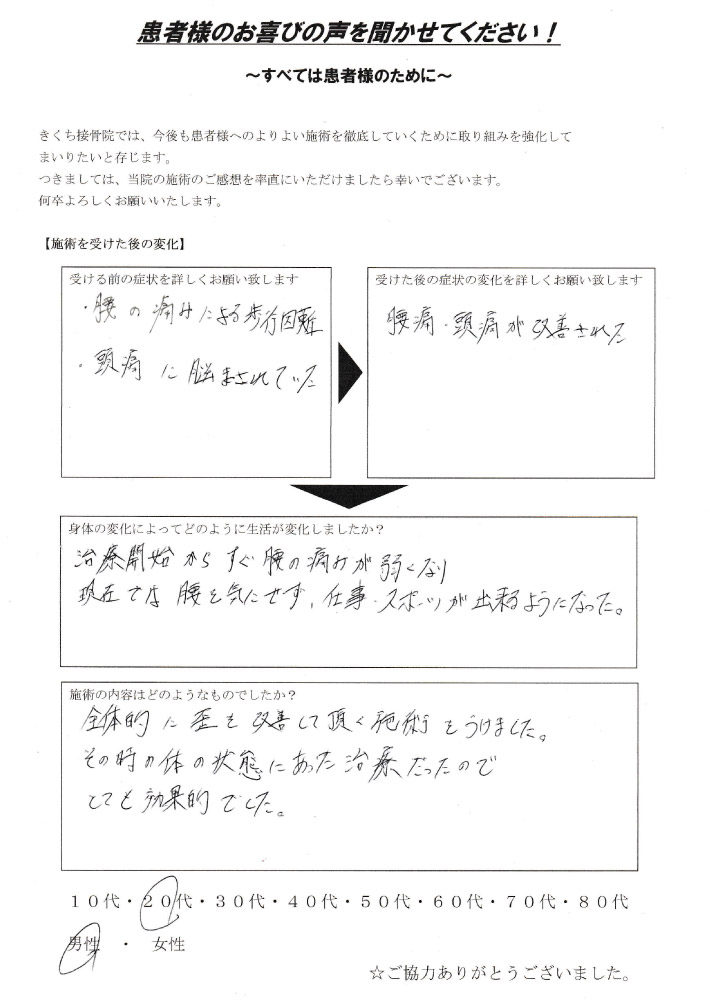 患者様のお喜びの声を聞かせてください！
～すべては患者様のために～
きくち接骨院では、今後も患者様へのよりよい施術を徹底していくために取り組みを強化して
まいりたいと存じます。
つきましては、当院の施術のご感想を率直にいただけましたら幸いでございます。
何卒よろしくお願いいたします。
【施術を受けた後の変化】
受ける前の症状を詳しくお願い致します
・腰の痛みによる歩行困難
・頭痛に脳まされていた
受けた後の症状の変化を詳しくお願い致します
腰痛・頭痛が改善された
身体の変化によってどのように生活が変化しましたか？
治療開始からすぐ腰の痛みが弱くなり
現在では腰を気にせず、仕事・スポーツが出来るようになった。
施術の内容はどのようなものでしたか？
全体的に歪を改善して頂く施術をうけました。
その時の体の状態にあった治療だったので
とても効果的でした。
１０代・２０代・３０代・４０代・５０代・６０代・７０代・８０代
男性 ・ 女性
☆ご協力ありがとうございました。